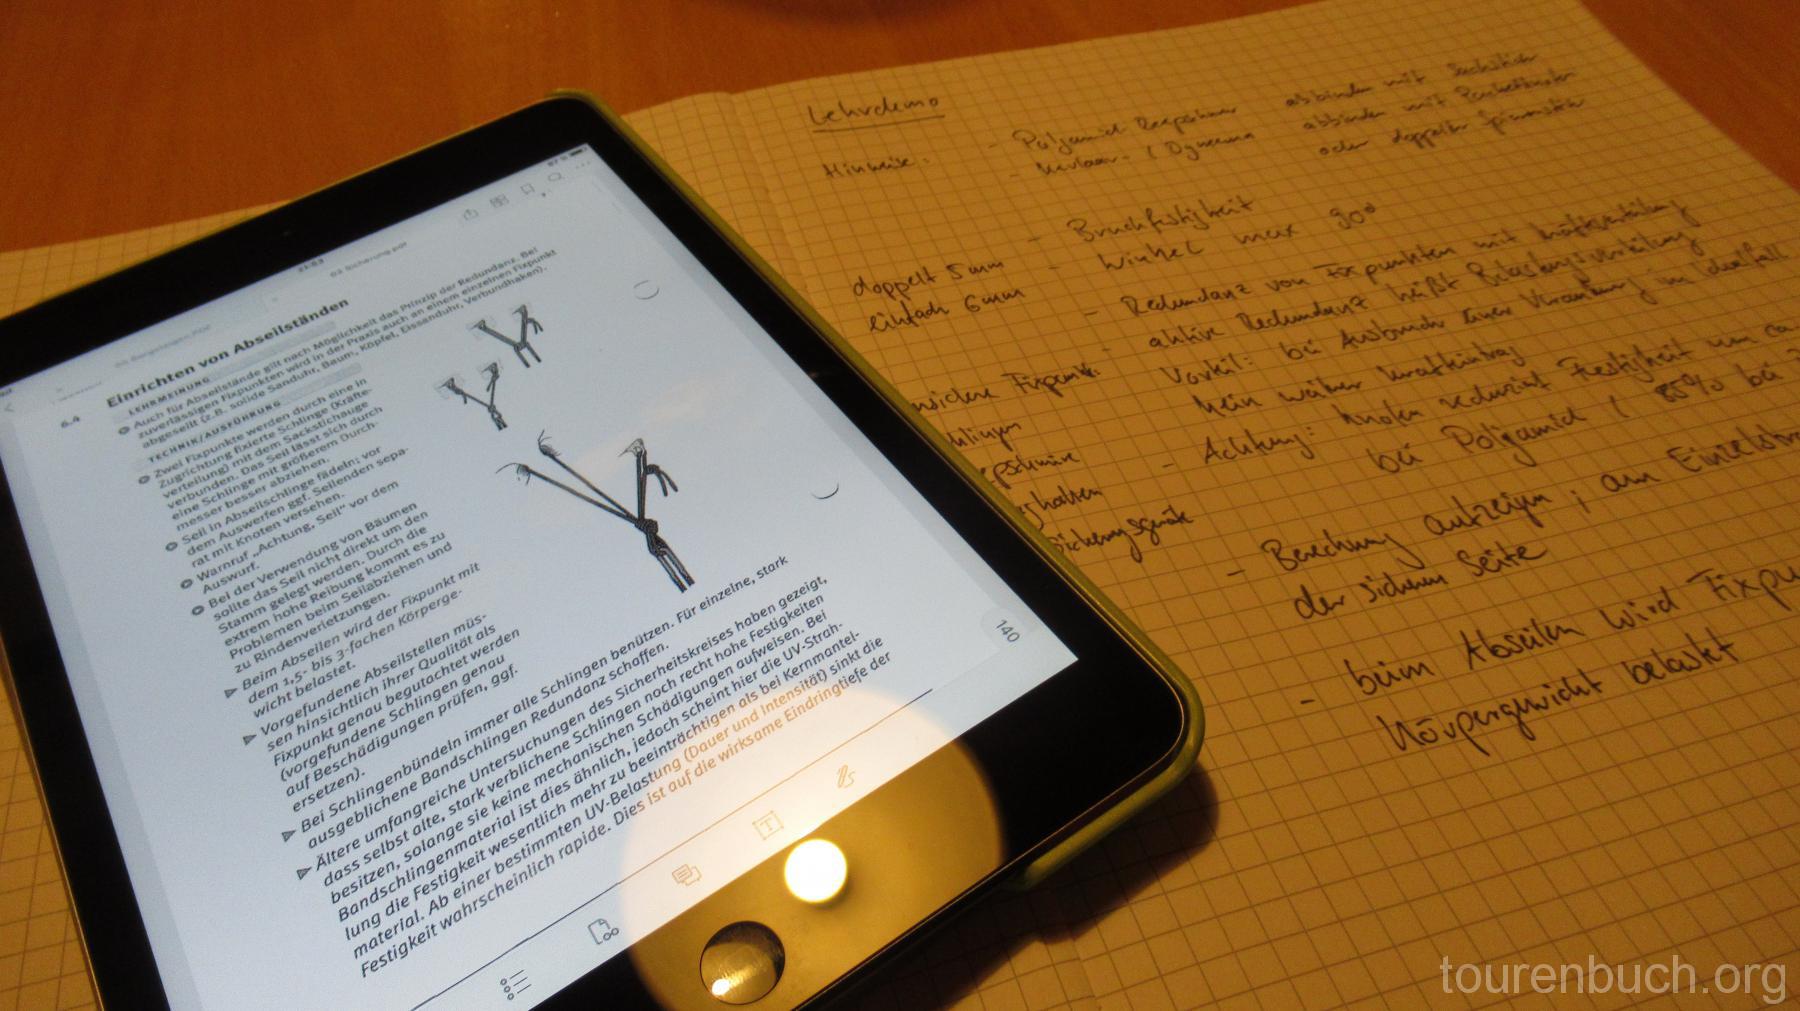 21:53
03 Sicherung.pdf
6.4 Einrichten von Abseilständen
LEHRMEINUNG
Auch für Abseilstände gilt nach Möglichkeit das Prinzip der Redundanz. Bei
zuverlässigen Fixpunkten wird in der Praxis auch an einem einzelnen Fixpunkt
abgeseilt (z.B. solide Sanduhr, Baum, Köpfel, Eissanduhr, Verbundhaken).
TECHNIK/AUSFÜHRUNG
Zwei Fixpunkte werden durch eine in
Zugrichtung fixierte Schlinge (Kräfte-
verteilung) mit dem Sackstichauge
verbunden. Das Seil lässt sich durch
eine Schlinge mit größerem Durch-
messer besser abziehen.
Seil in Abseilschlinge fädeln; vor
dem Auswerfen ggf. Seilenden sepa-
rat mit Knoten versehen.
Warnruf „Achtung, Seil“ vor dem
Auswurf.
Bei der Verwendung von Bäumen
sollte das Seil nicht direkt um den
Stamm gelegt werden. Durch die
extrem hohe Reibung kommt es zu
Problemen beim Seilabziehen und
zu Rindenverletzungen.
Beim Abseilen wird der Fixpunkt mit
dem 1,5- bis 3-fachen Körperge-
wicht belastet.
Vorgefundene Abseilstellen müs-
sen hinsichtlich ihrer Qualität als
Fixpunkt genau begutachtet werden
(vorgefundene Schlingen genau
auf Beschädigungen prüfen, ggf.
ersetzen).
Bei Schlingenbündeln immer alle Schlingen benützen. Für einzelne, stark
ausgeblichene Bandschlingen Redundanz schaffen.
Ältere umfangreiche Untersuchungen des Sicherheitskreises haben gezeigt,
dass selbst alte, stark verblichene Schlingen noch recht hohe Festigkeiten
besitzen, solange sie keine mechanischen Schädigungen aufweisen. Bei
Bandschlingenmaterial ist dies ähnlich, jedoch scheint hier die UV-Strah-
lung die Festigkeit wesentlich mehr zu beeinträchtigen als bei Kernmantel-
material. Ab einer bestimmten UV-Belastung (Dauer und Intensität) sinkt die
Festigkeit wahrscheinlich rapide. Dies ist auf die wirksame Eindringtiefe der
140
Lehrdemo
Hinweise: - Polyamid Reepschnur abbinden mit Sackstich
- Kevlar- / Dyneema abbinden mit
oder doppelter Spierenstich
- Bruchfestigkeit
doppelt 5mm - Winkel max 90°
einfach 6mm
- Redundanz von Fixpunkten mit Kräfteverteilung
- aktive Redundanz heißt Belastungsverteilung
Vorteil: bei Ausbruch einer Verankerung im Idealfall
kein weiterer Krafteintrag
- Achtung: Knoten reduziert Festigkeit um ca.
bei Polyamid / 85% bei
- Berechnung aufzeigen; am
der sicheren Seite
- beim Abseilen wird Fixpu
Körpergewicht belastet
tourenbuch.org